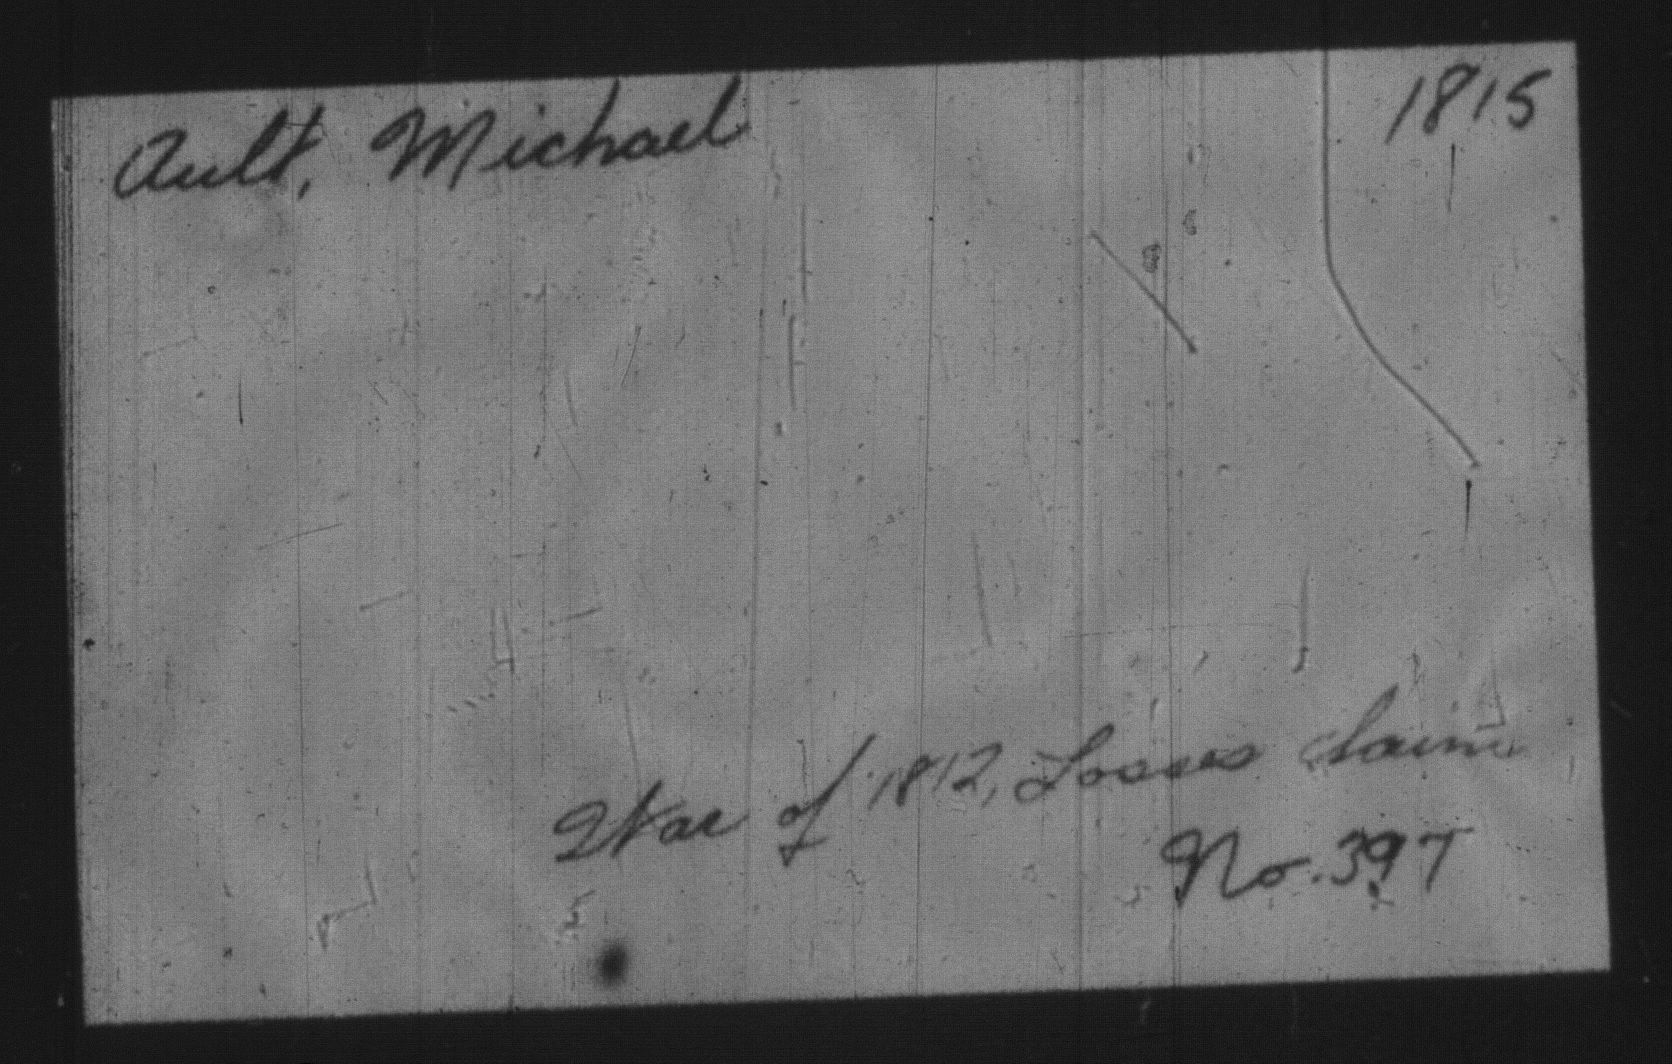 Ault, Michael 1815
War of 1812, Losses claim
No. 397